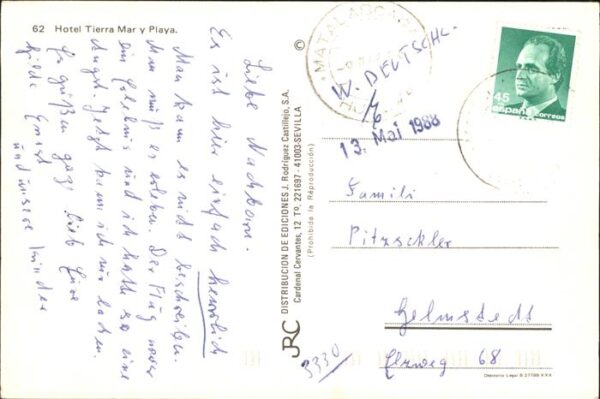 62 Hotel Tierra Mar y Playa.
Liebe Nachbarn.
Es ist hier einfach herrlich
Man kann es nicht beschreiben.
Man muß es erleben. Der Flug war
ein Erlebnis und ich hatte so eine
Angst. Jetzt kann ich nur lachen.
Es grüßen ganz lieb Eure
Hilde Ernst
und unsere Kinder
© DISTRIBUCION DE EDICIONES J. Rodríguez Castillejo, S.A.
Cardenal Cervantes, 12 T. 221697 - 41003-SEVILLA
(Prohibida la Reproducción)
JRC
MATALASCAÑAS
45
españa correos
W. DEUTSCHL.
13. Mai 1988
Famili
Pitzschler
Helmstedt
3330
Erzweg 68